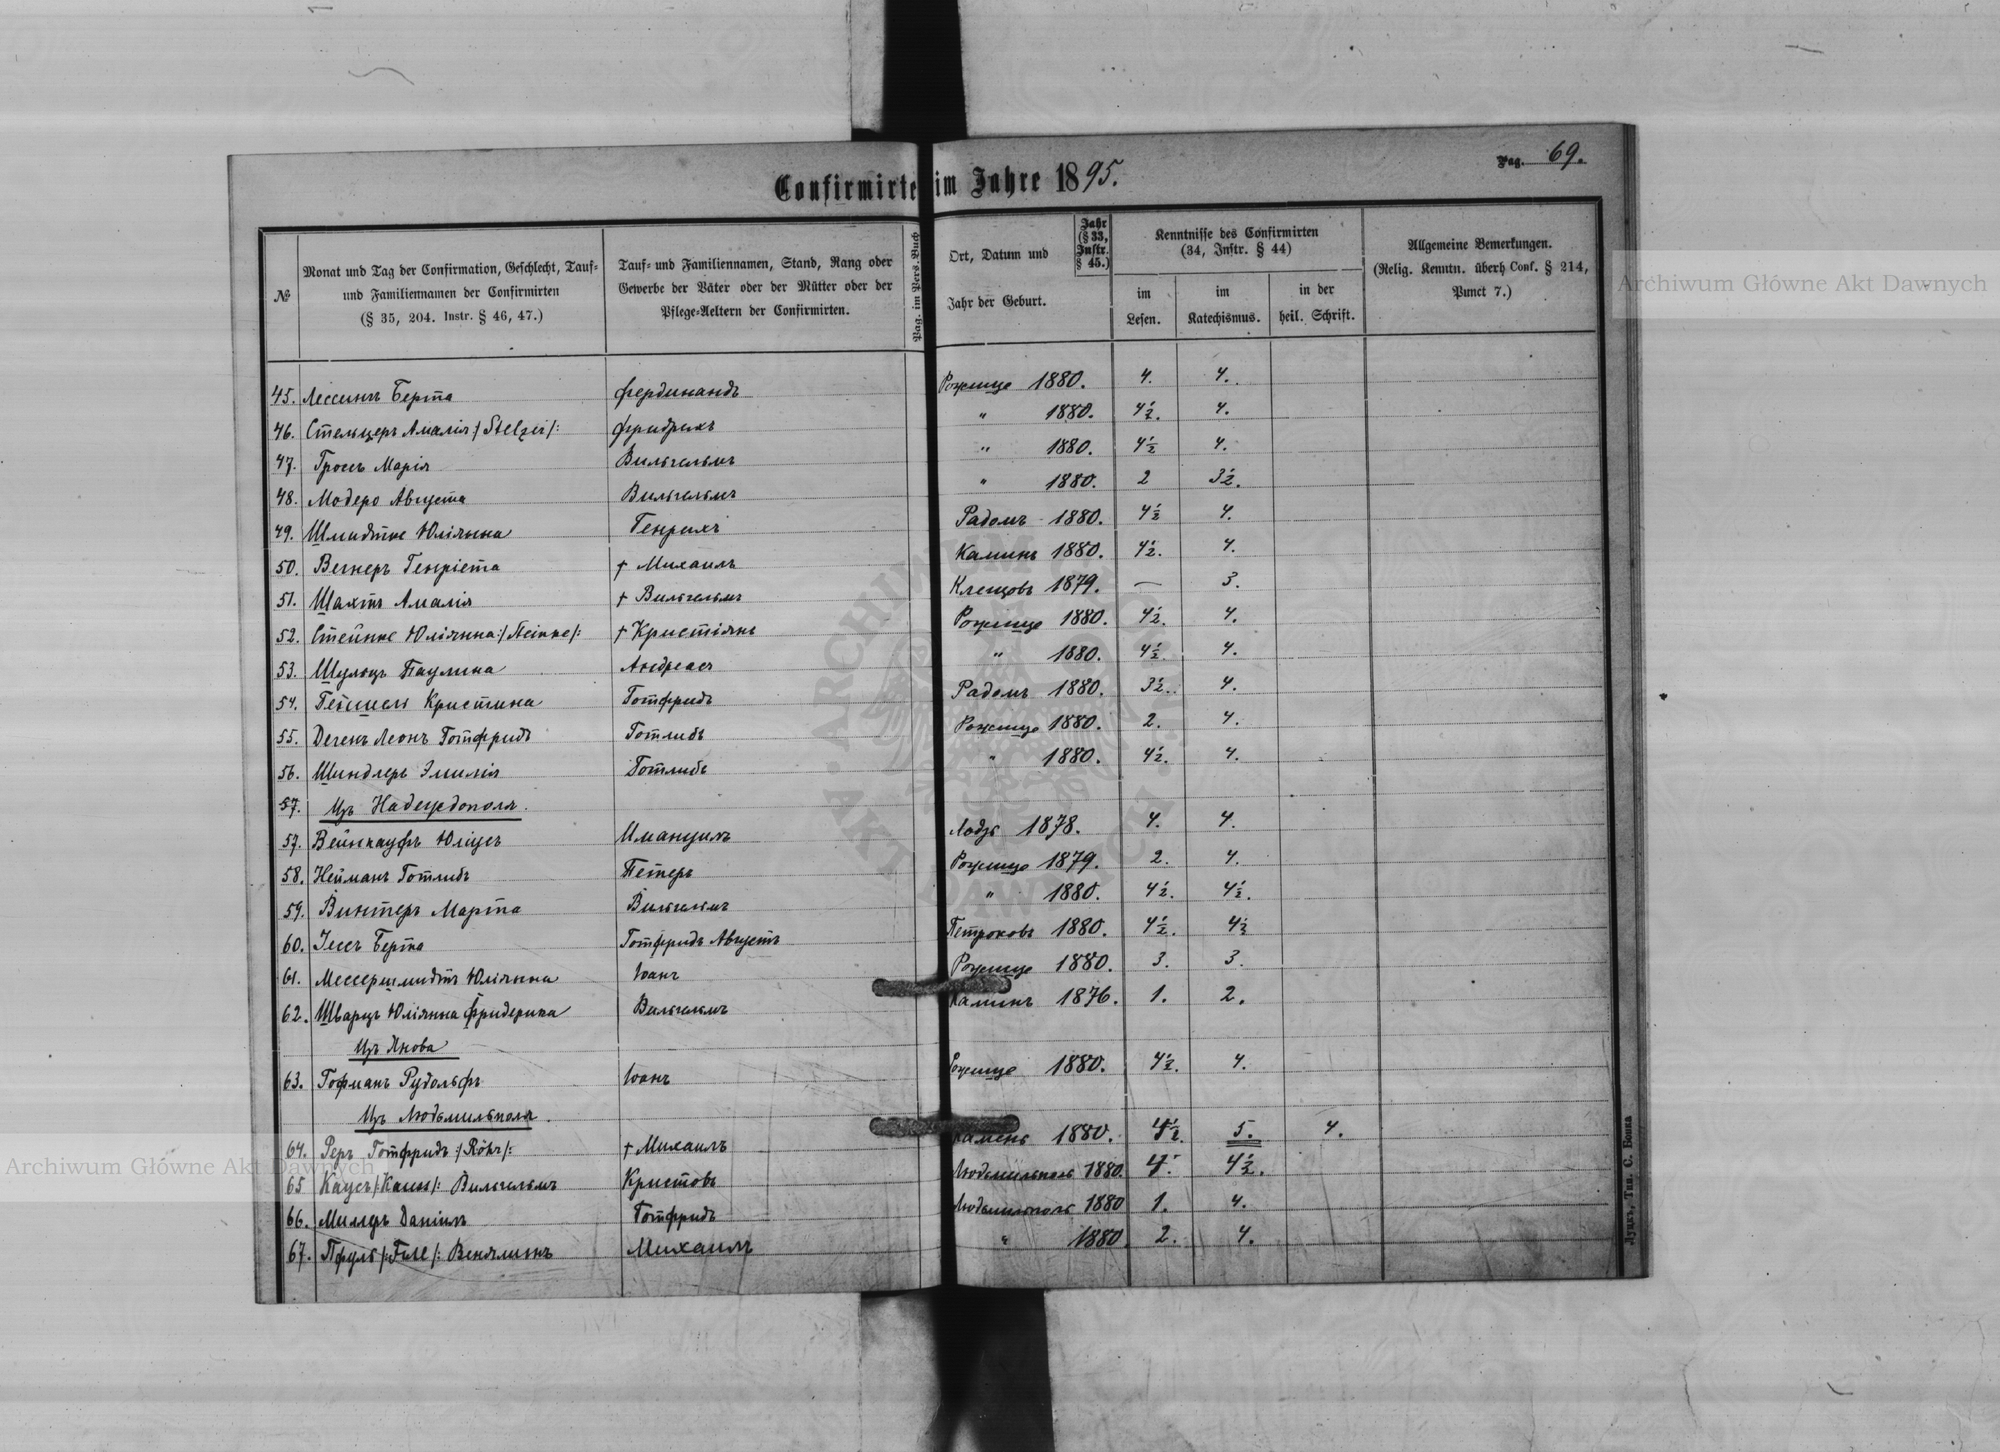 Pag. 69.
Confirmirte im Jahre 1895.
№
Monat und Tag der Confirmation, Geschlecht, Tauf-
und Familiennamen der Confirmirten
(§ 35, 204. Instr. § 46, 47.)
Tauf- und Familiennamen, Stand, Rang oder
Gewerbe der Väter oder der Mütter oder der
Pflege-Aeltern der Confirmirten.
Pag. im Pers. Buch
Ort, Datum und
Jahr der Geburt.
Jahr
(§ 33,
Instr.
§ 45.)
Kenntnisse des Confirmirten
(34, Instr. § 44)
im
Lesen.
im
Katechismus.
in der
heil. Schrift.
Allgemeine Bemerkungen.
(Relig. Kenntn. überh Conf. § 214,
Punct 7.)
45. Лессингъ Берта Фердинандъ Рожище 1880. 4. 4.
46. Стельцеръ Амалія /: Stelzer /: Фридрихъ " 1880. 4½. 4.
47. Гроссъ Марія Вильгельмъ " 1880. 4½ 4.
48. Модеро Августа Вильгельмъ " 1880. 2 3½.
49. Шмидтке Юліянна Генрихъ Радомъ 1880. 4½ 4.
50. Вегнеръ Генріета † Михаилъ Каминъ 1880. 4½. 4.
51. Шахтъ Амалія † Вильгельмъ Клещовъ 1879. — 3.
52. Стейнке Юліянна † Кристіянъ Рожище 1880. 4½. 4.
53. Шульцъ Паулина Андреасъ " 1880. 4½. 4.
54. Кристина Готфридъ Радомъ 1880. 3½. 4.
55. Дегенъ Леонъ Готфридъ Готлибъ Рожище 1880. 2. 4.
56. Шиндлеръ Эмилія Готлибъ " 1880. 4½. 4.
57. Изъ
57. Вейнкауфъ Юліусъ Имануилъ Лодзь 1878. 4. 4.
58. Нейманъ Готлибъ Петеръ Рожище 1879. 2. 4.
59. Винтеръ Марта Вильгельмъ " 1880. 4½. 4½.
60. Іессъ Берта Готфридъ Августъ Петроковъ 1880. 4½. 4½
61. Мессершмидтъ Юліянна Іоанъ Рожище 1880. 3. 3.
62. Шварцъ Юліянна Фридерика Вильгельмъ Каминъ 1876. 1. 2.
Изъ Янова
63. Гофманъ Рудольфъ Іоанъ Рожище 1880. 4½. 4.
Изъ Людьмильполя.
64. Реръ Готфридъ /: Röhr /: † Михаилъ Камень 1880. 4½. 5. 4.
65 Каусъ /: Kauss /: Вильгельмъ Кристовъ Людьмильполь 1880. 4. 4½.
66. Миллеръ Даніилъ Готфридъ Людьмильполь 1880 1. 4.
67. Пфуль Веняминъ Михаилъ " 1880. 2. 4.
Луцкъ, Тип. С. Бонка
Archiwum Główne Akt Dawnych
Archiwum Główne Akt Dawnych